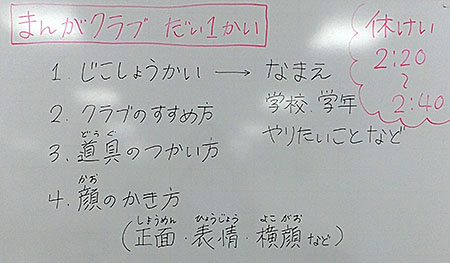 まんがクラブ だい1かい
休けい
2:20
〜
2:40
1. じこしょうかい → なまえ
学校.学年
やりたいことなど
2. クラブのすすめ方
3. 道具のつかい方
どうぐ
4. 顔のかき方
かお
(正面・表情・横顔など)
しょうめん ひょうじょう よこがお